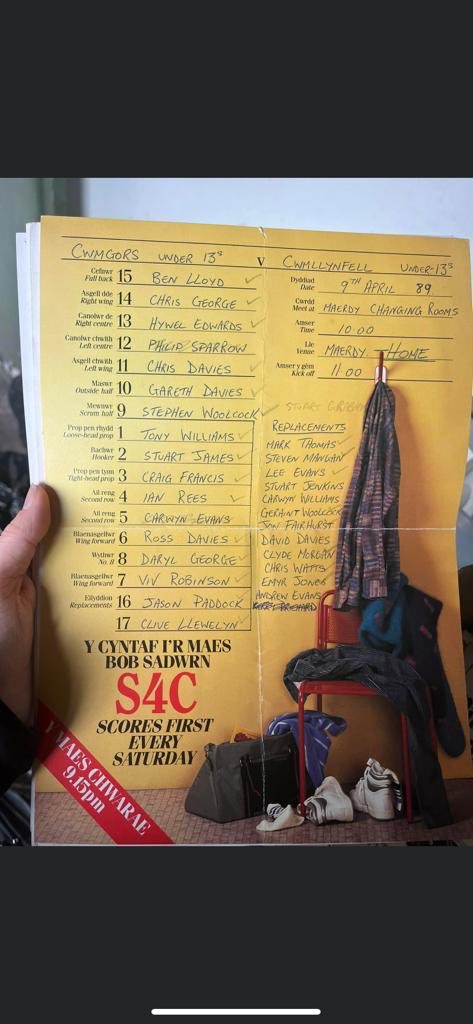 CWMGORS UNDER 13S V CWMLLYNFELL UNDER-13S
Cefnwr
Full back 15 BEN LLOYD ✓
Asgell dde
Right wing 14 CHRIS GEORGE ✓
Canolwr de
Right centre 13 HYWEL EDWARDS ✓
Canolwr chwith
Left centre 12 PHILIP SPARROW
Asgell chwith
Left wing 11 CHRIS DAVIES ✓
Maswr
Outside half 10 GARETH DAVIES ✓
Mewnwr
Scrum half 9 STEPHEN WOOLCOCK ✓
Prop pen rhydd
Loose-head prop 1 TONY WILLIAMS ✓
Bachwr
Hooker 2 STUART JAMES ✓
Prop pen tynn
Tight-head prop 3 CRAIG FRANCIS ✓
Ail reng
Second row 4 IAN REES ✓
Ail reng
Second row 5 CARWYN EVANS
Blaenasgellwr
Wing forward 6 ROSS DAVIES ✓
Wythwr
No. 8 8 DARYL GEORGE ✓
Blaenasgellwr
Wing forward 7 VIV ROBINSON ✓
Eilyddion
Replacements 16 JASON PADDOCK ✓
17 CLIVE LLEWELYN ✓
Dyddiad
Date 9TH APRIL 89
Cwrdd
Meet at MAERDY CHANGING ROOMS
Amser
Time 10.00
Lle
Venue MAERDY - HOME
Amser y gêm
Kick off 11.00
STUART
REPLACEMENTS
MARK THOMAS ✓
STEVEN MANGAN
LEE EVANS ✓
STUART JENKINS
CARWYN WILLIAMS
GERAINT WOOLCOCK
JON FAIRHURST
DAVID DAVIES
CLYDE MORGAN
CHRIS WATTS
EMYR JONES
ANDREW EVANS
Y CYNTAF I'R MAES
BOB SADWRN
S4C
SCORES FIRST
EVERY
SATURDAY
Y MAES CHWARAE
9.15pm